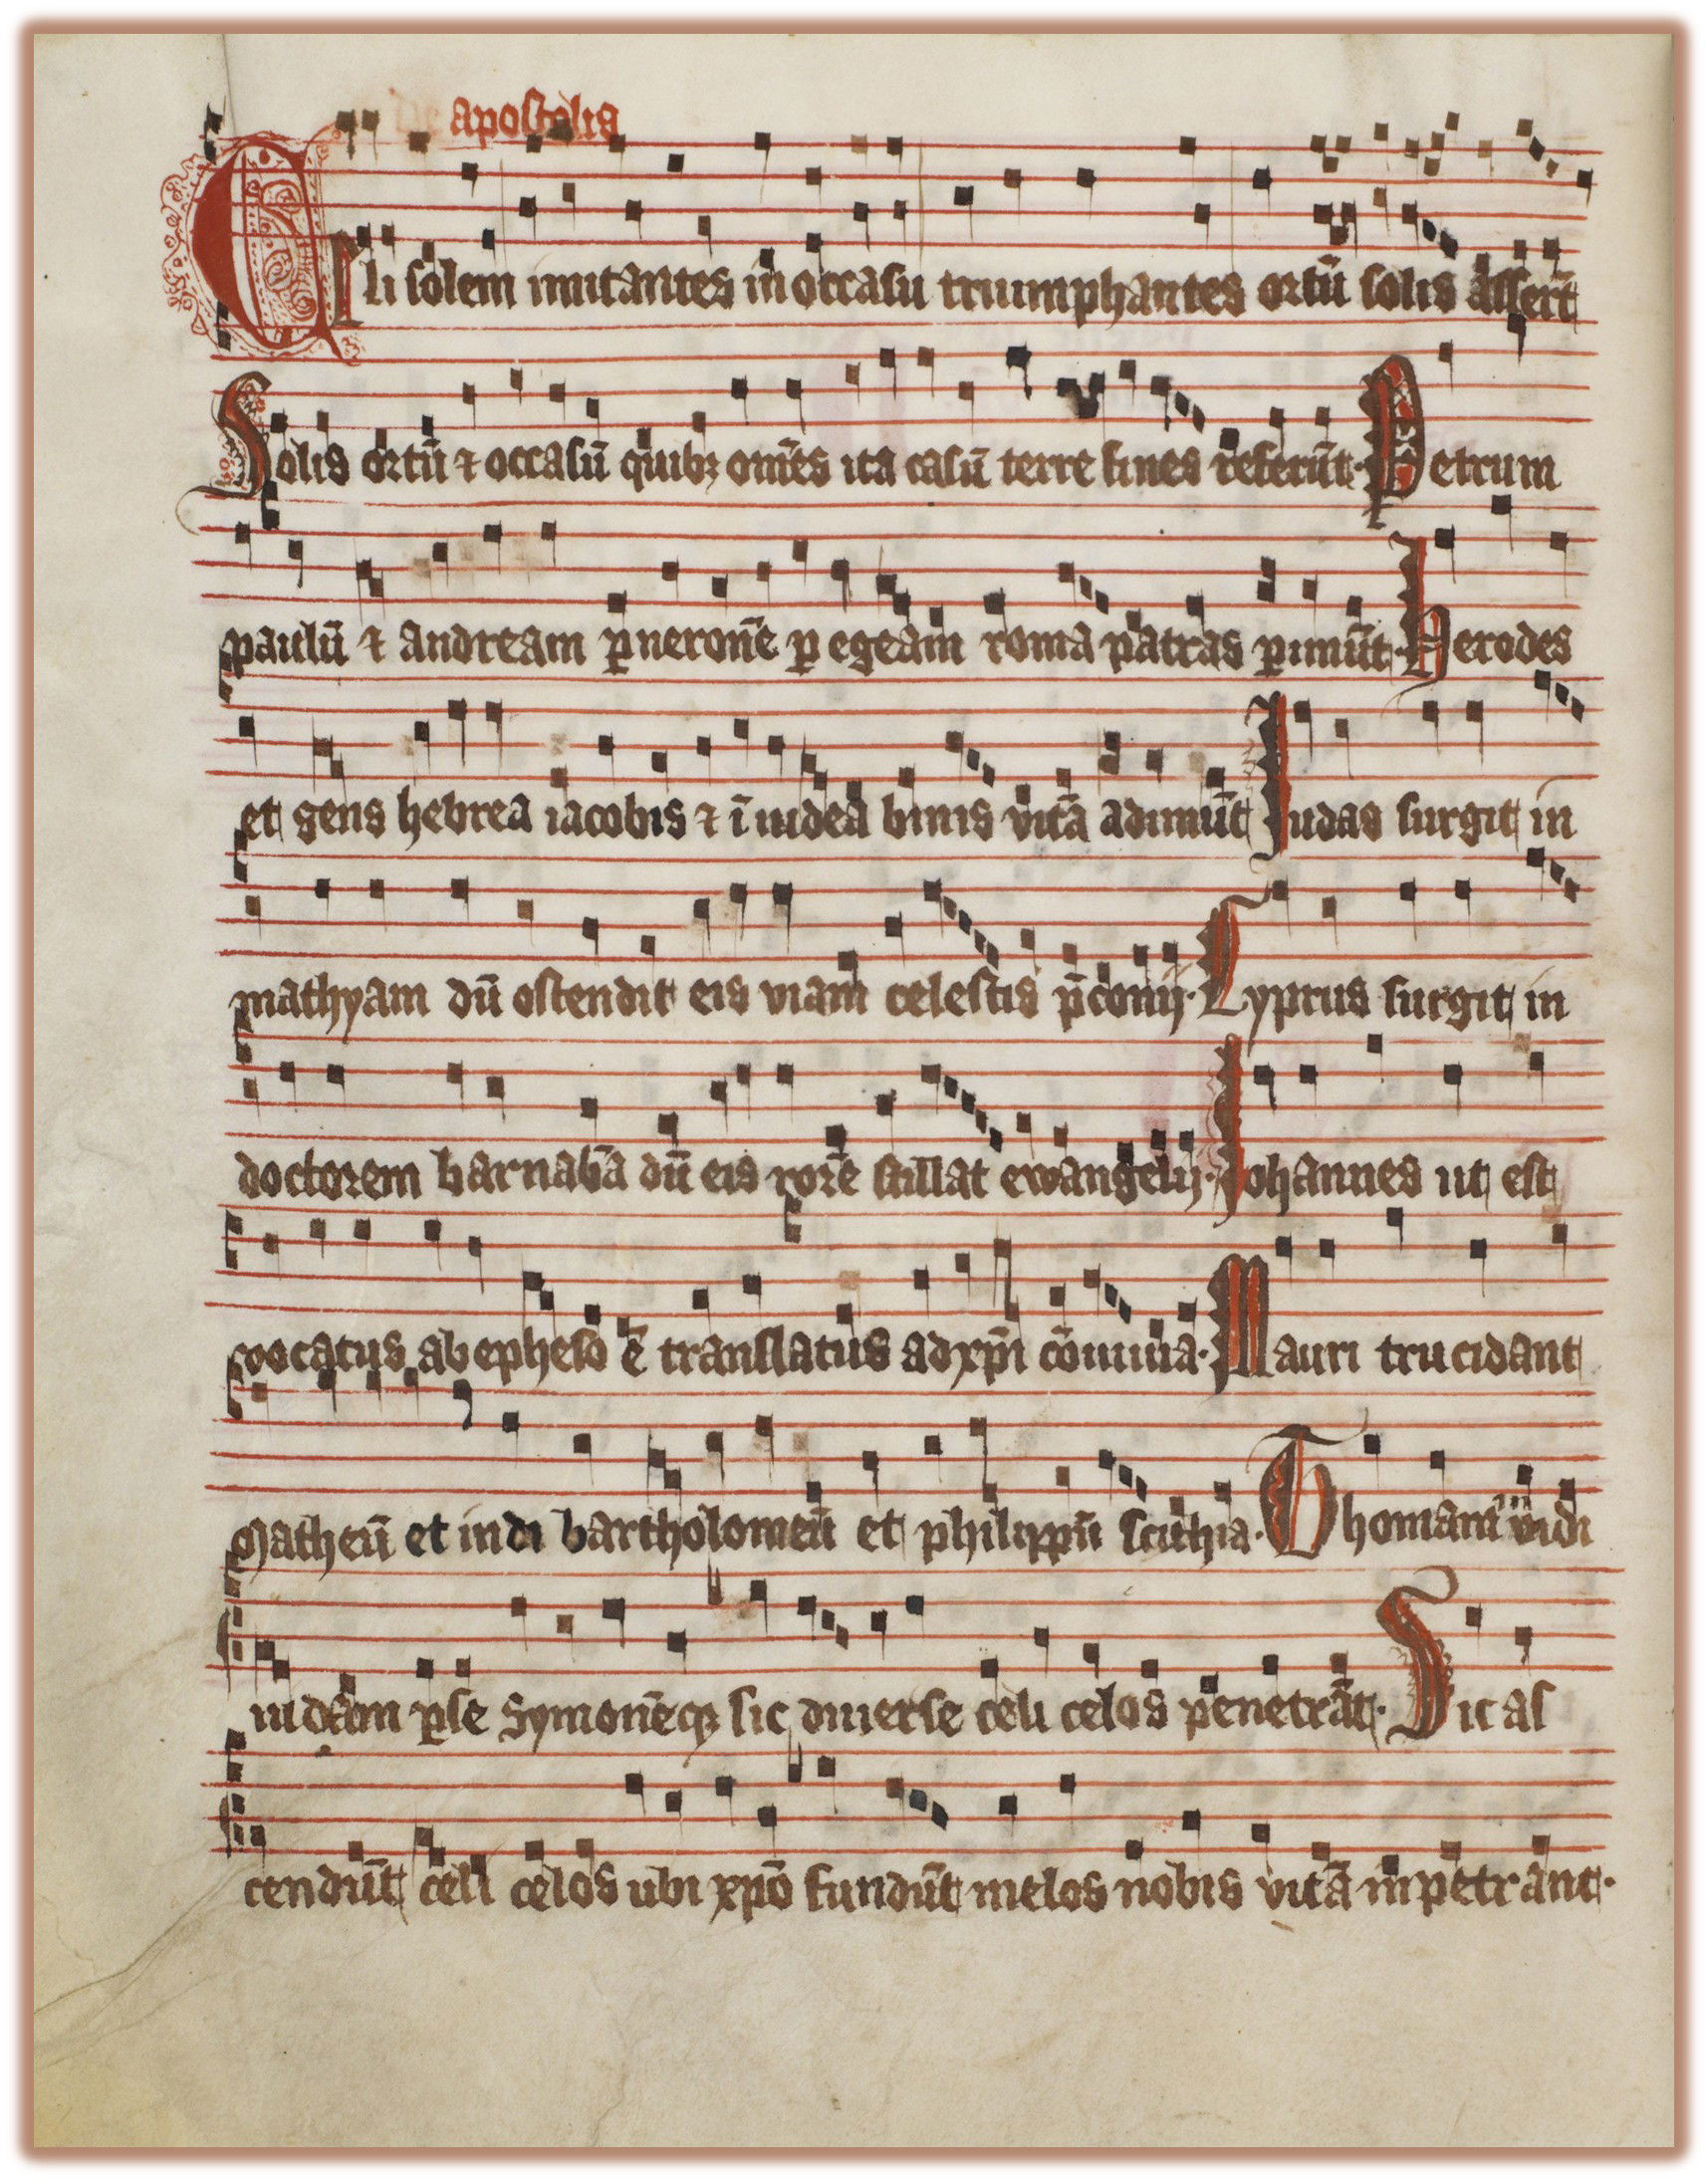 De apostolis
Celi solem imitantes in occasu triumphantes ortū solis asserūt
Solis ortū ⁊ occasū quibꝫ om̄es ita casū terre fines referūt· Petrum
paulū ⁊ andream ꝑ neronē ꝑ egeam roma patras ꝑimūt· Herodes
et gens hebrea iacobis ⁊ ī iudea binis vitā adimūt Iudas surgit in
mathyam dū ostendit eis viam celestis p̄conij· Cyprus surgit in
doctorem barnabā dū eis rorē stillat ewangelij· Johannes ut est
vocatus ab epheso ē translatus ad xp̄i cōuiuia· Mauri trucidant
Matheū et indi bartholomeū et philippū scithia· Thomam indi
iudam ꝑse Symonēqꝫ sic diuerse celi celos penetrāt· Sic as
cendūt celi celos ubi xp̄o fundūt melos nobis vitā inpetrant·